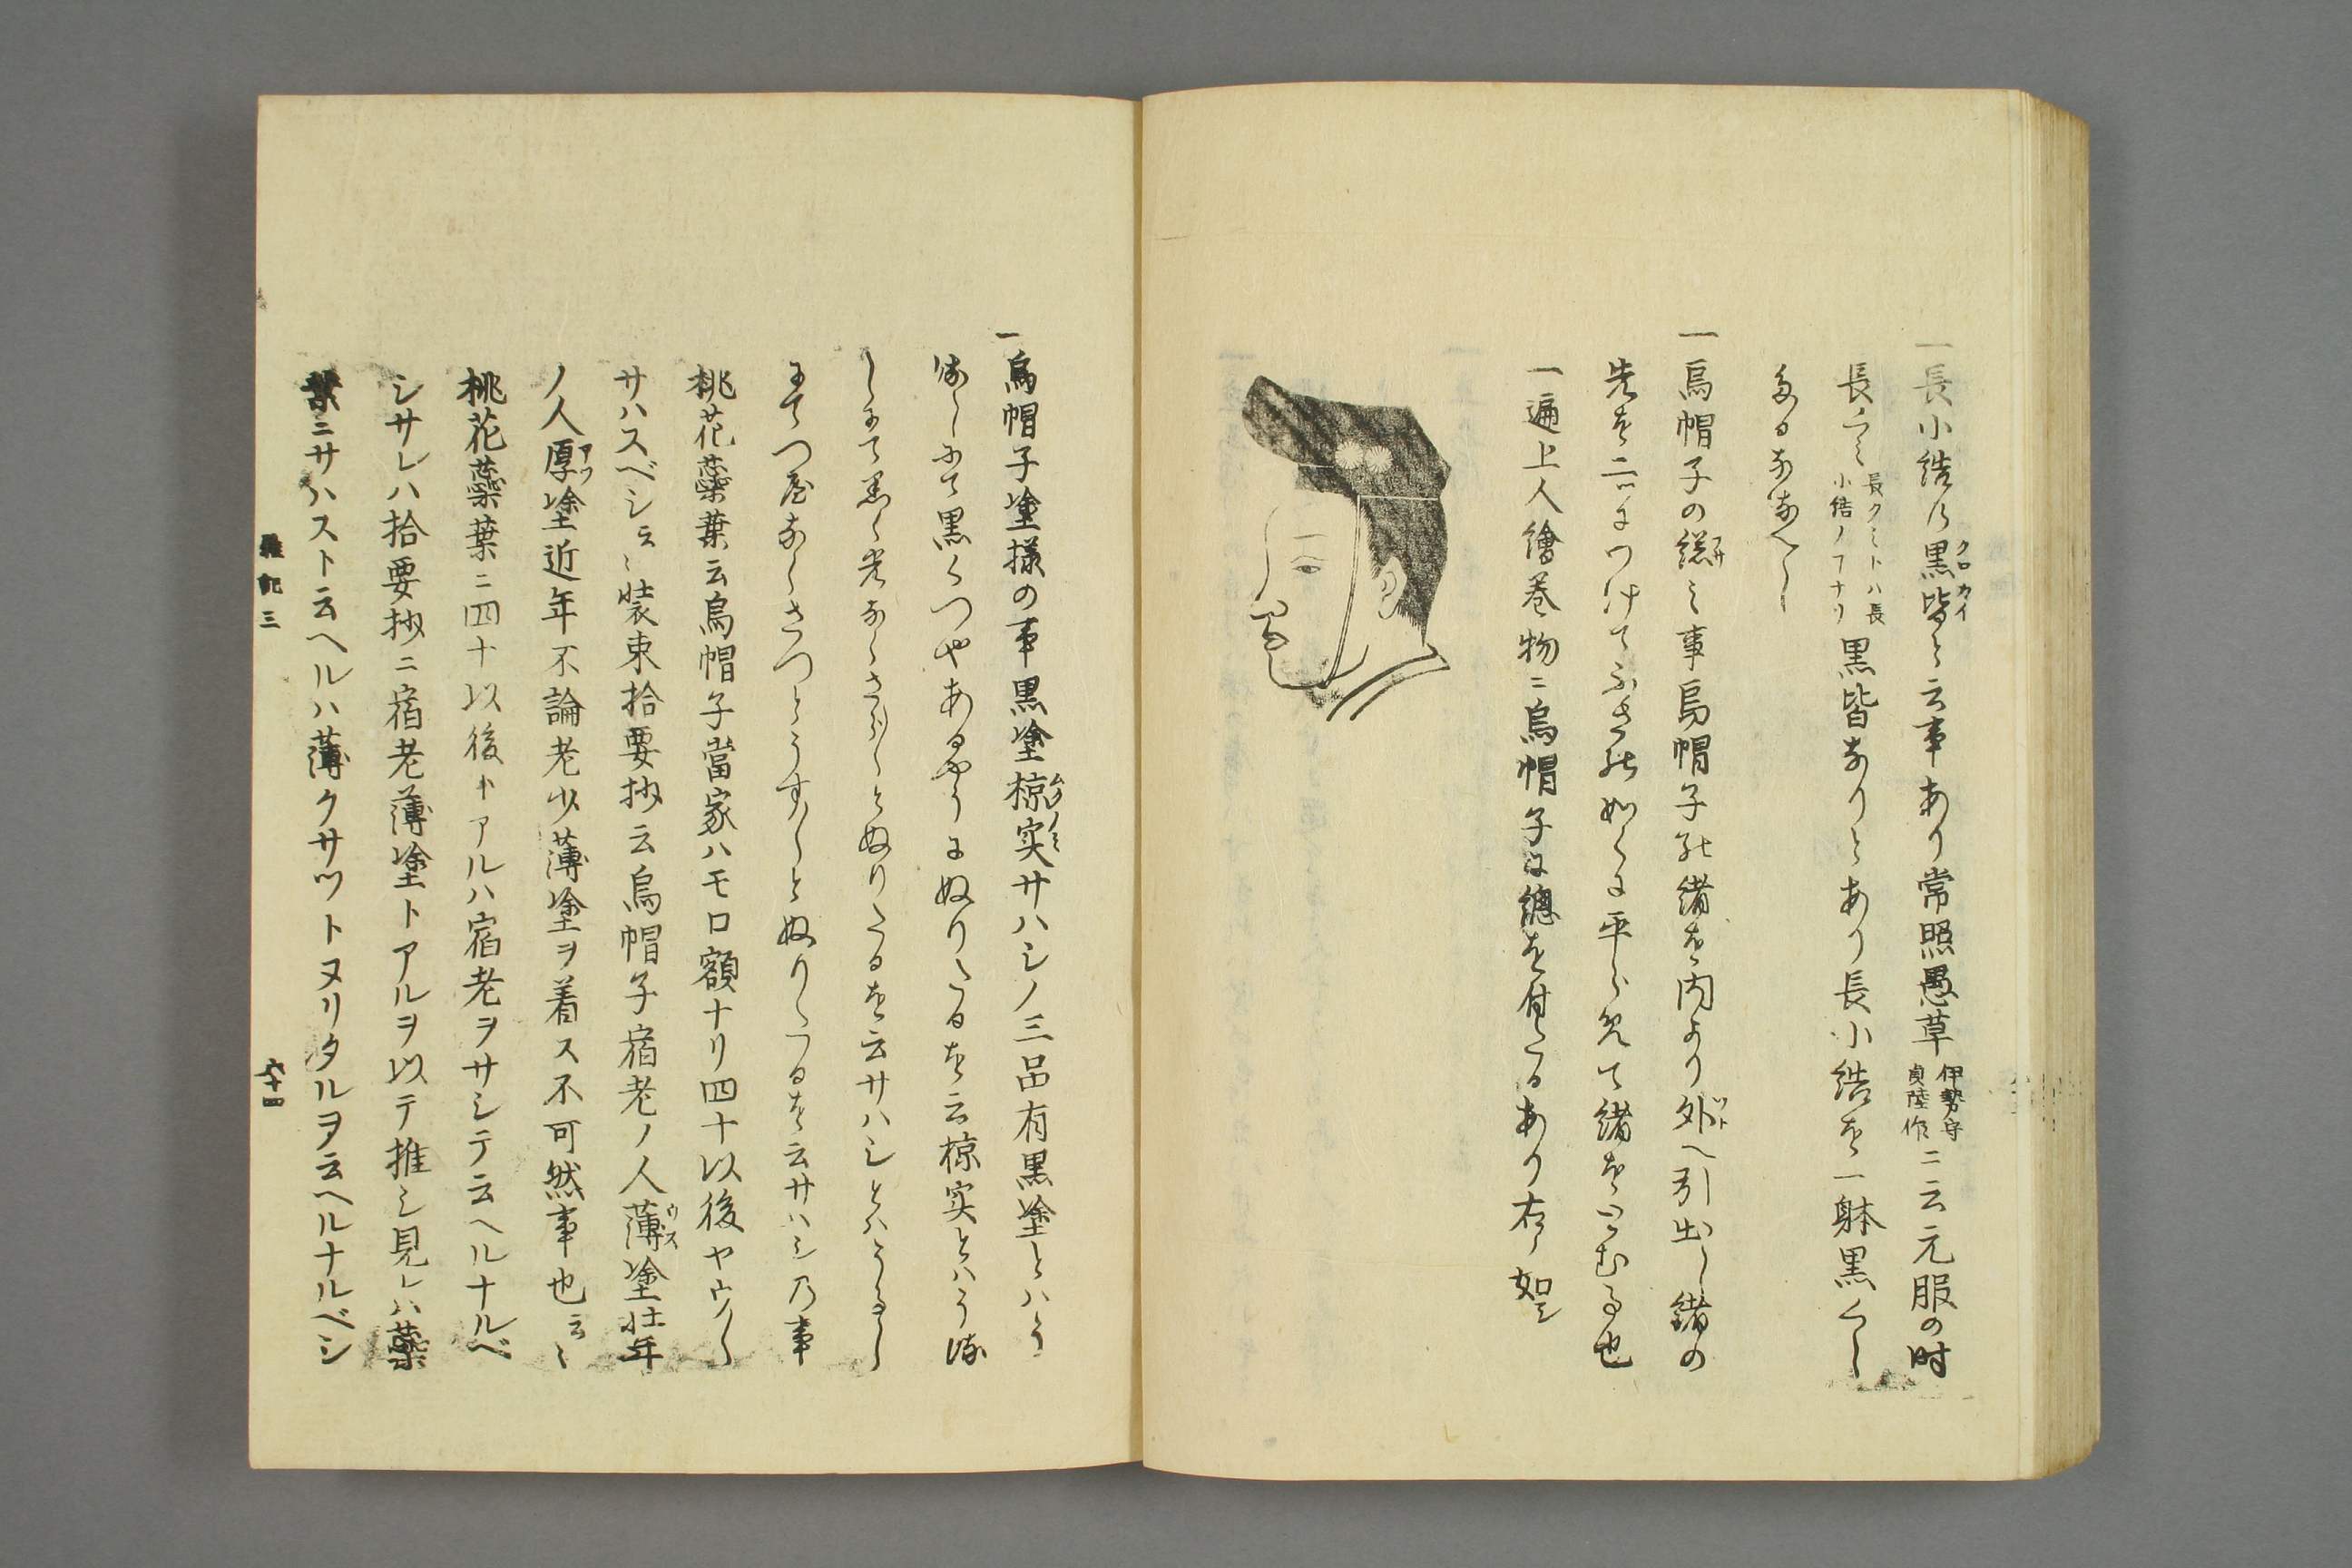 一長小結乃黒皆と云事あり常照愚草伊勢守貞陸作ニ云元服の時
クロカイ
長クミ長クミトハ長小結ノ丁ナリ黒皆ありとあり長小結を一躰黒くし
たるなるへし
一烏帽子の総之事烏帽子の緒を内より外へ引出し緒の
フサ
ソト
先を二ツにつけてふさの如くに平らめて緒をしむる也
一遍上人繪巻物ニ烏帽子に總を付たるあり右ノ如シ
一烏帽子塗様の事黒塗椋実サハシノ三品有黒塗とハう
ムクノミ
るしにて黒くつやあるやうにぬりたるを云椋実とハうる
しにて黒く光なくさら〳〵とぬりたるを云サハシとハうるし
にてつ屋なくさつとうす〳〵とぬりたるを云サハシ乃事
桃花蘂葉云烏帽子當家ハモロ額ナリ四十以後ヤウ〳〵
サハスベシ云〻装束拾要抄云烏帽子宿老ノ人薄塗壮年
ウス
ノ人厚塗近年不論老少薄塗ヲ着ス不可然事也云〻
アツ
桃花蘂葉ニ四十以後トアルハ宿老ヲサシテ云ヘルナルベ
シサレハ拾要抄ニ宿老薄塗トアルヲ以テ推シ見レハ蘂
葉ニサハストヘルハ薄クサツトヌリタルヲ云ヘルナルベシ
雜記三
六十四